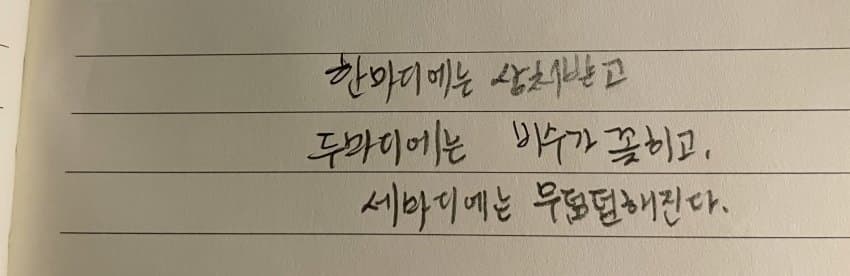 한마디에는 상처받고
두마디에는 비수가 꽂히고,
세마디에는 무덤덤해진다.